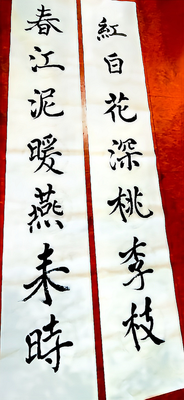 紅白花深桃李枝
春江泥暖燕来時